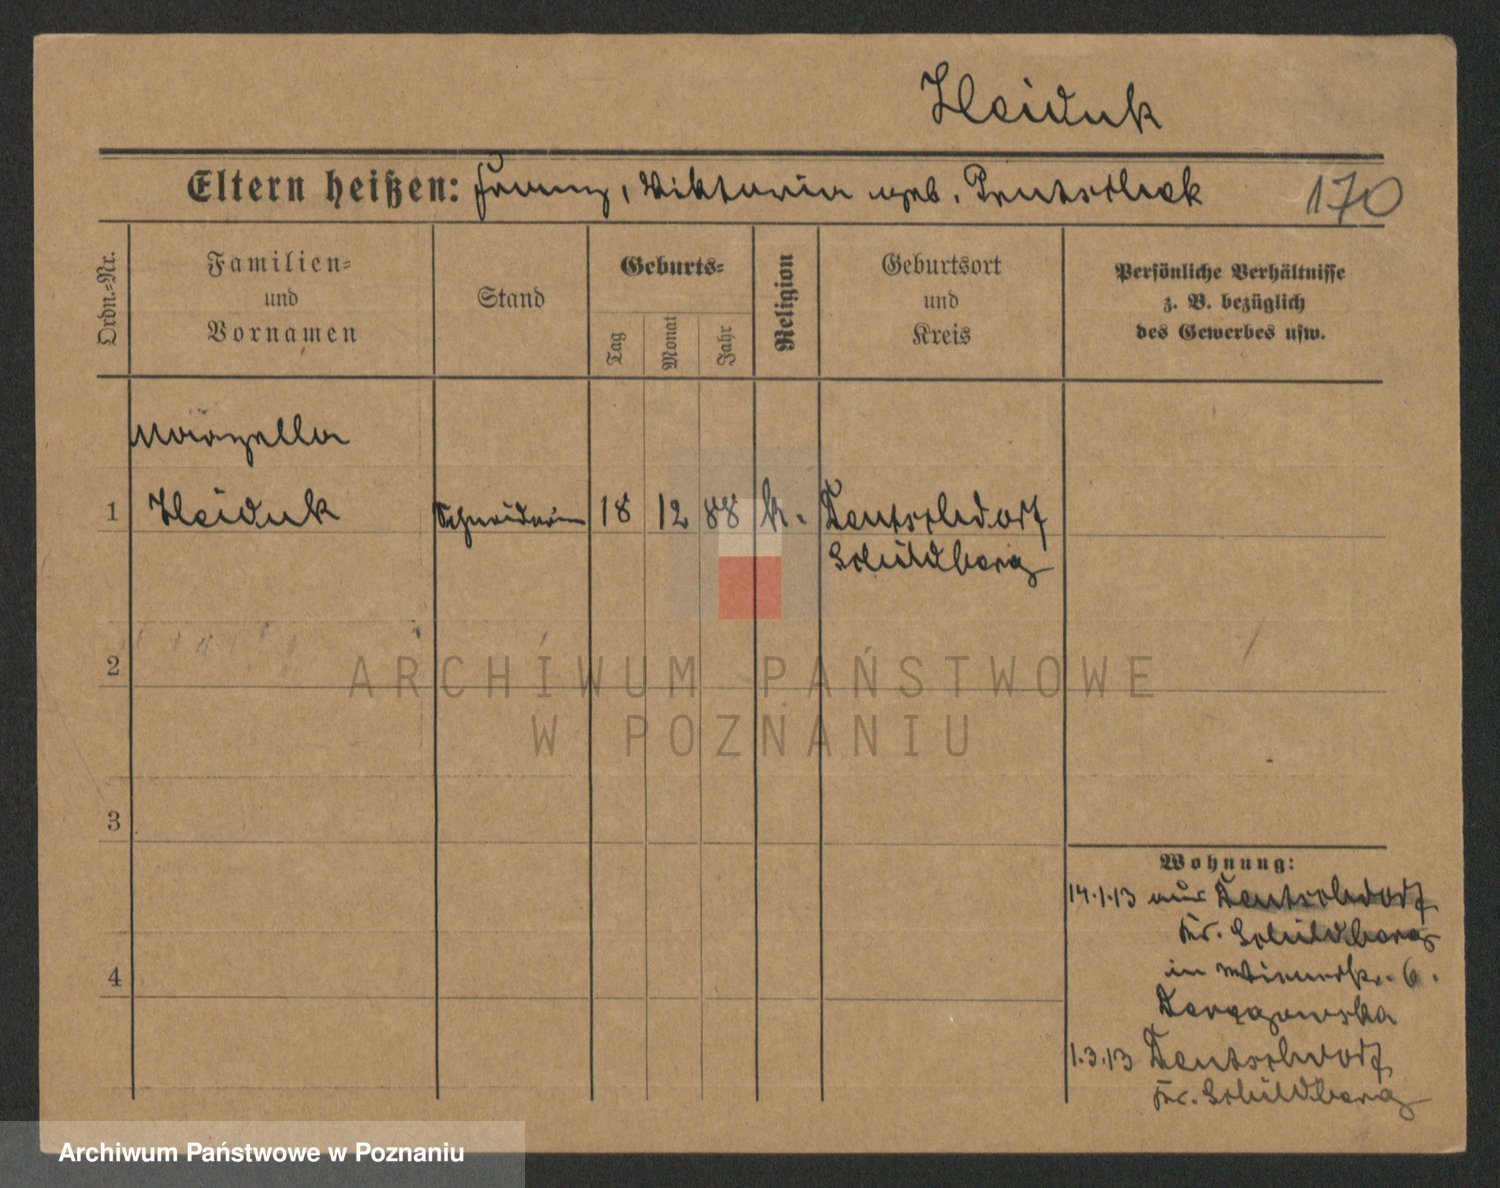 Heiduk
Eltern heißen: Franz, Viktoria geb.
170
Ordn.-Nr.
Familien-
und
Vornamen
Stand
Geburts-
Tag
Monat
Jahr
Religion
Geburtsort
und
Kreis
Persönliche Verhältnisse
z. B. bezüglich
des Gewerbes usw.
Marzella
1 Heiduk Schneiderin 18 12 88 k. Deutschdorf
Schildberg
2
ARCHIWUM PAŃSTWOWE
W POZNANIU
3
Wohnung:
14.1.13 aus Deutschdorf
Kr. Schildberg
4
in 6.
1.3.13 Deutschdorf
Kr. Schildberg
Archiwum Państwowe w Poznaniu